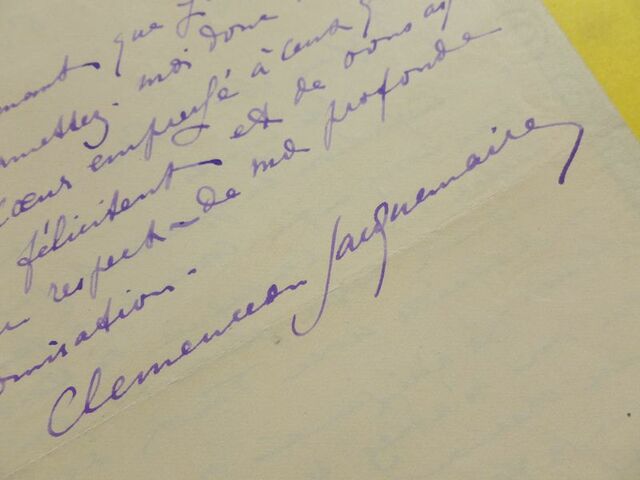 que j
mettez-moi donc
empressé à ceux
félicitent et de vous
respect de ma profonde
Clemenceau Jacquemaire